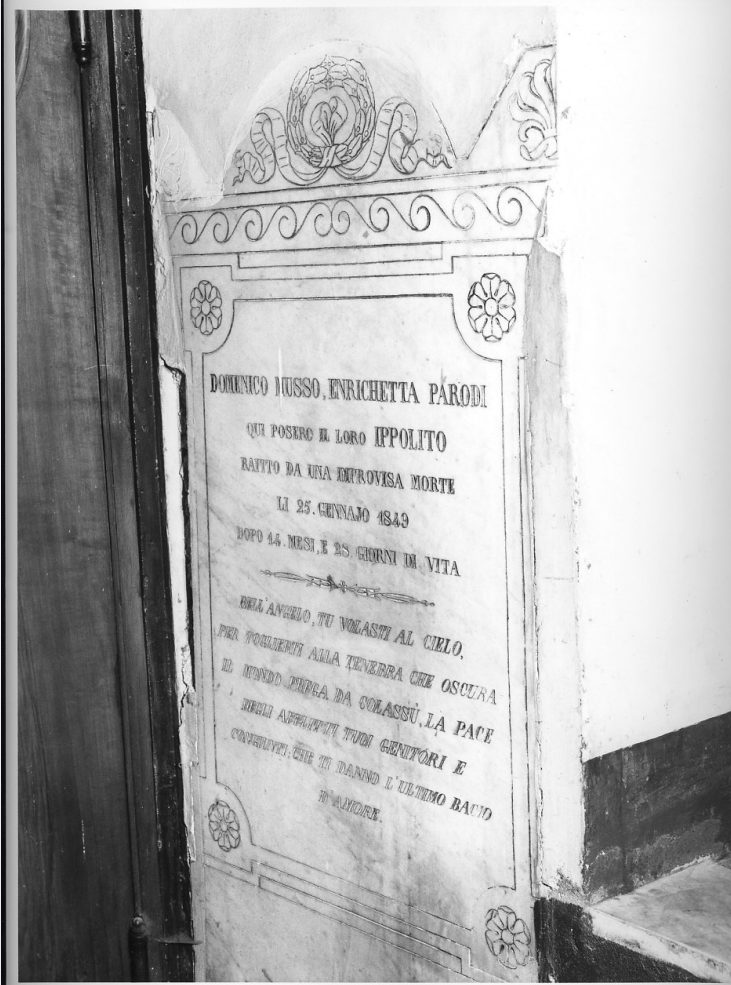 DOMENICO MUSSO, ENRICHETTA PARODI
QUI POSERO IL LORO IPPOLITO
RAPITO DA UNA IMPROVISA MORTE
LI 25. GENNAJO 1849
DOPO 14. MESI, E 28. GIORNI DI VITA
BELL'ANGELO, TU VOLASTI AL CIELO,
PER TOGLIERTI ALLA TENEBRA CHE OSCURA
IL MONDO. PREGA DA COLASSÙ, LA PACE
DEGLI AFFLITTI TUOI GENITORI E
CONGIUNTI, CHE TI DANNO L'ULTIMO BACIO
D'AMORE.